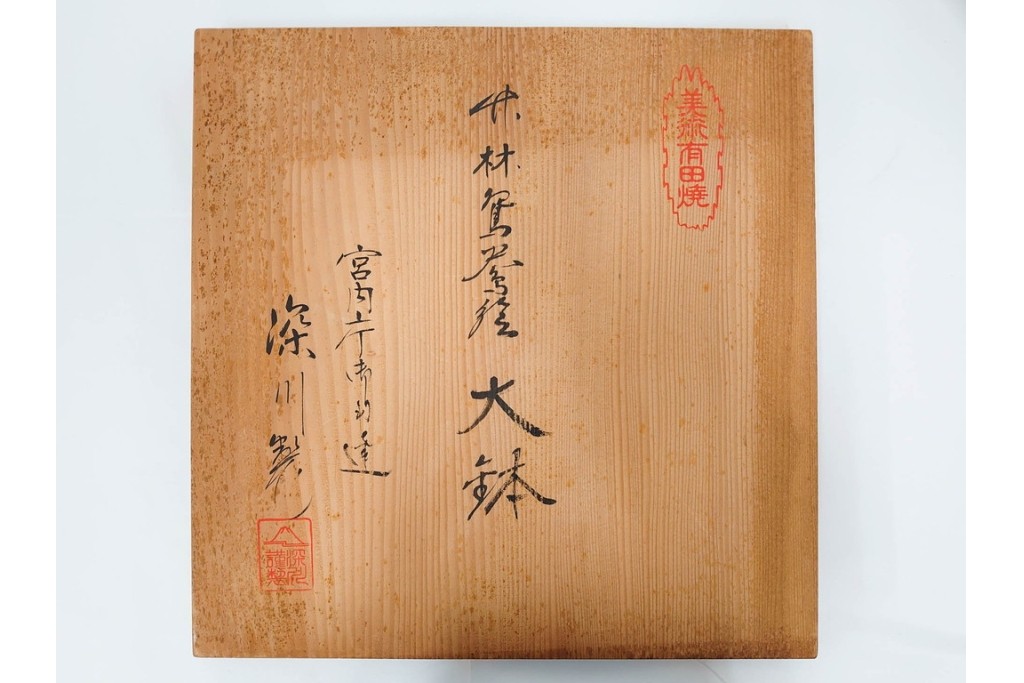 美術有田焼
竹林鴛鴦絵 大鉢
宮内庁御用達
深川製
深川
謹製